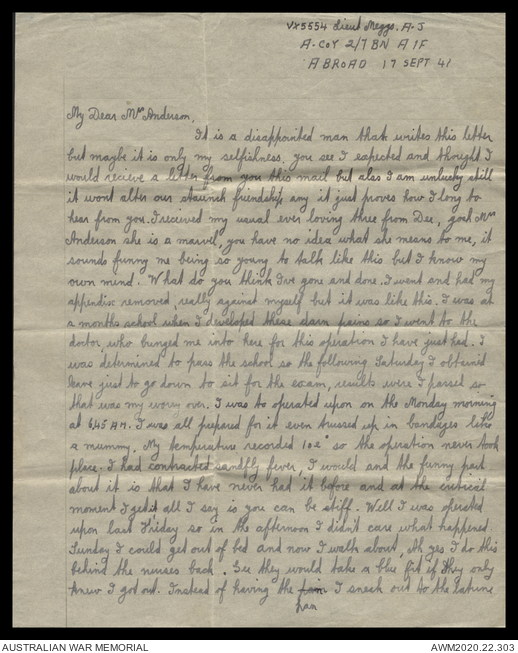 VX5554 Lieut Meggs. A. J
A. COY 2/7 BN A I F
ABROAD 17 SEPT 41
My Dear Mrs Anderson,
It is a disappointed man that writes this letter
but maybe it is only my selfishness, you see I expected and thought I
would recieve a letter from you this mail but alas I am unlucky still
it wont alter our staunch friendship any it just proves how I long to
hear from you. I received my usual ever loving three from Dee, gosh Mrs
Anderson she is a marvel, you have no idea what she means to me, it
sounds funny me being so young to talk like this but I know my
own mind. What do you think I've gone and done. I went and had my
appendix removed, really against myself but it was like this. I was at
a months school when I developed these darn pains so I went to the
doctor who bunged me into here for this operation I have just had. I
was determined to pass the school so the following Saturday I obtained
leave just to go down to sit for the exam, results were I passed so
that was my worry over. I was to operated upon on the Monday morning
at 6.45 AM. I was all prepared for it even trussed up in bandages like
a mummy. My temperature recorded 102° so the operation never took
place. I had contracted sandfly fever, I would and the funny part
about it is that I have never had it before and at the critical
moment I get it all I say is you can be stiff. Well I was operated
upon last Friday so in the afternoon I didn't care what happened
Sunday I could get out of bed and now I walk about, Ah yes I do this
behind the nurses back. Gee they would take a blue fit if they only
knew I got out. Instead of having the pan I sneak out to the latrine
pan
AUSTRALIAN WAR MEMORIAL
AWM2020.22.303